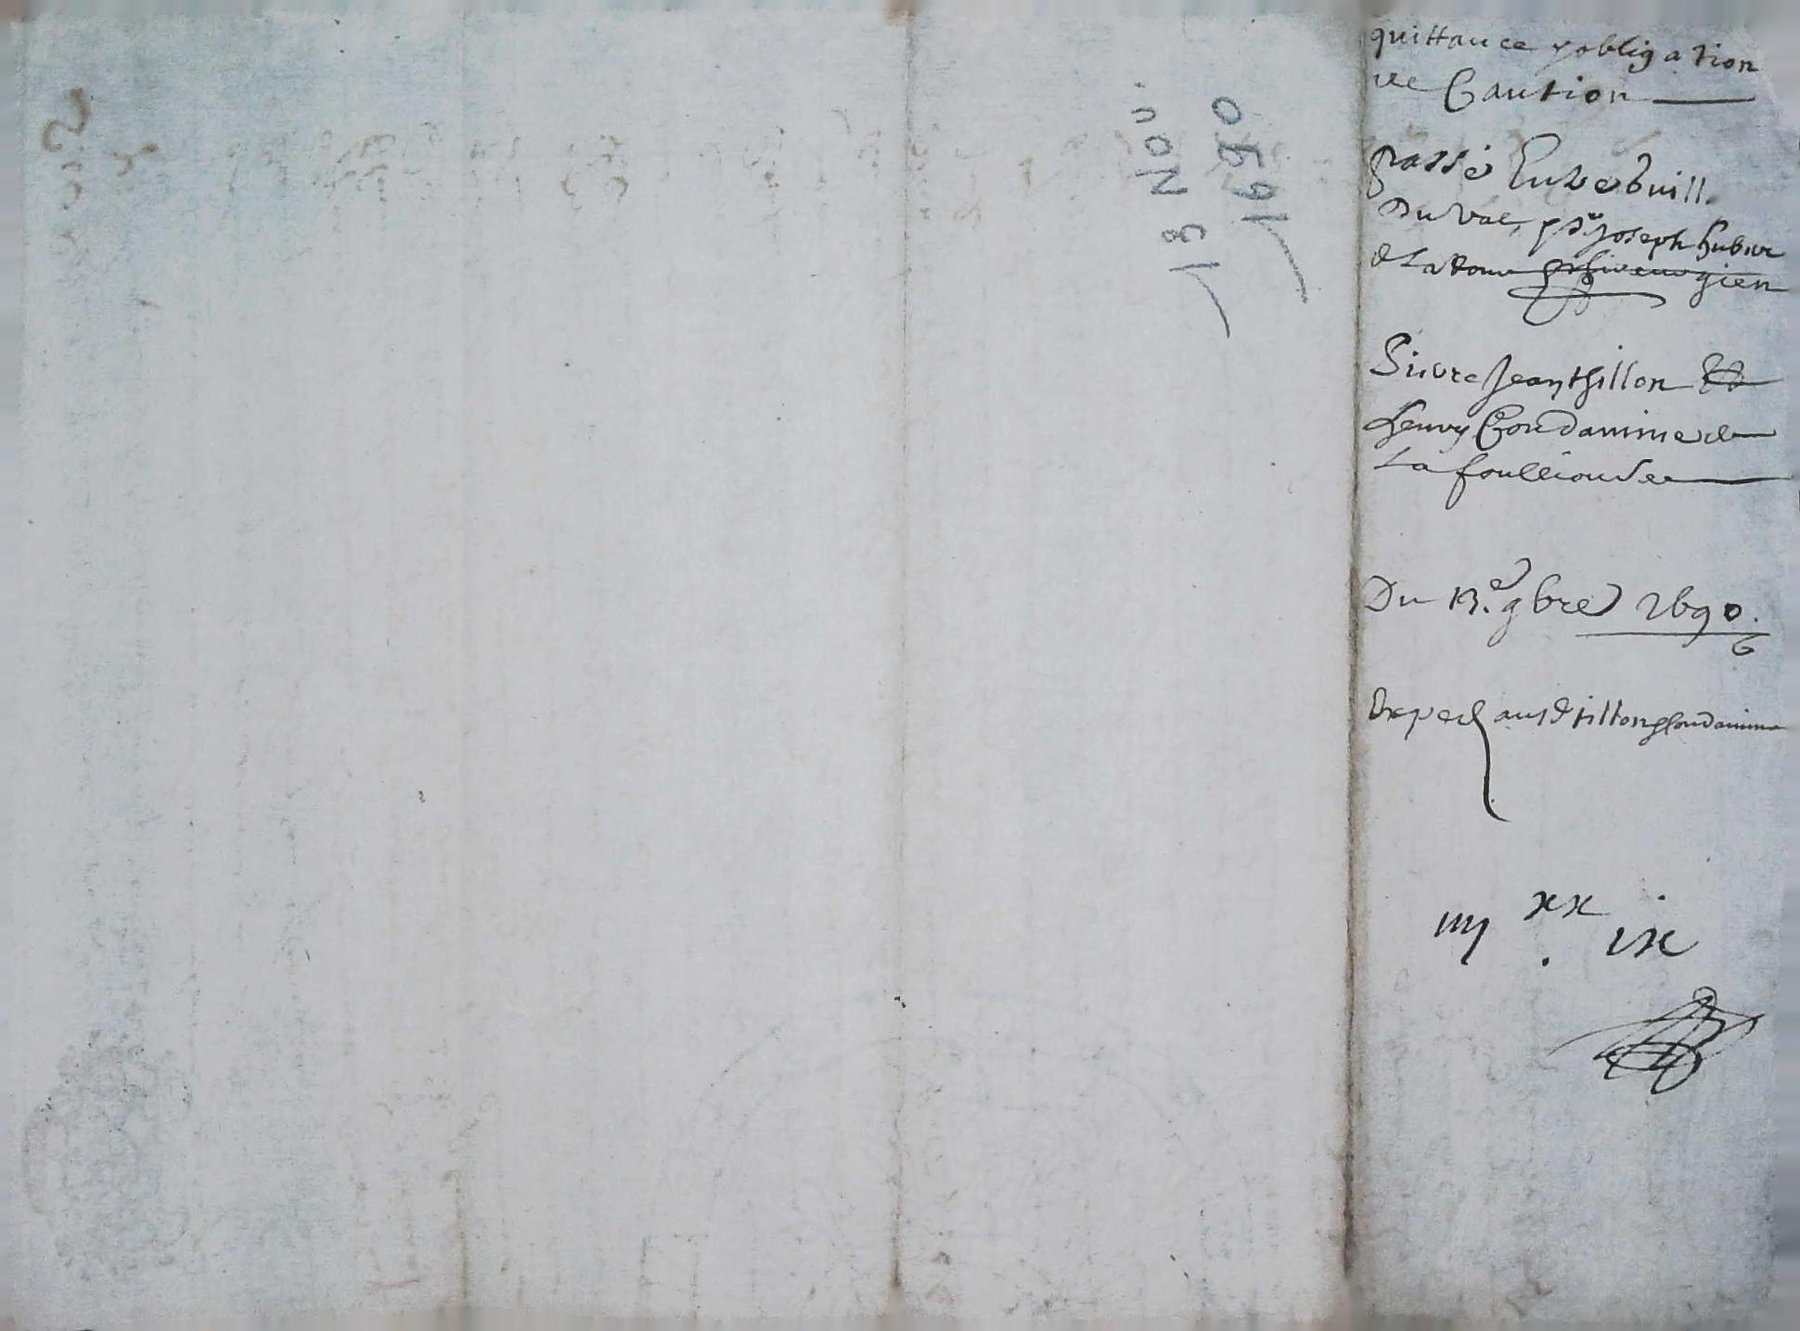 quittance & obligation
de Caution
passé Entre Guill.
Du Val, & Sr. Joseph hubert
Sieur Jean thillon Et
henry Condamine de
La foulliouse
Du 13.e 9bre 1690.
Exped aus d tillon & Condamine
iiij xx ix
13 Nov.
1690